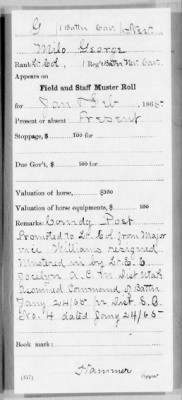 G | 1 Battn Cav. | Nev.
Milo George
Rank Lt Col, 1 Reg't Battn Nev. Cav.
Appears on
Field and Staff Muster Roll
for Jan & Feb, 1865
Present or absent Present
Stoppage, $ 100 for
Due Gov't, $ 100 for
Valuation of horse, $ 100
Valuation of horse equipments, $ 100
Remarks: Comdg Post
Promoted to Lt Col from Major
vice Williams resigned
Mustered in by Lt
Jocelyn A.C.M. Dist Utah
Assumed Command of Battn
Jany 24/65 pr Dist. S.O.
No. 4 dated Jany 24/65
Book mark:
Hammer
(857) Copyist.